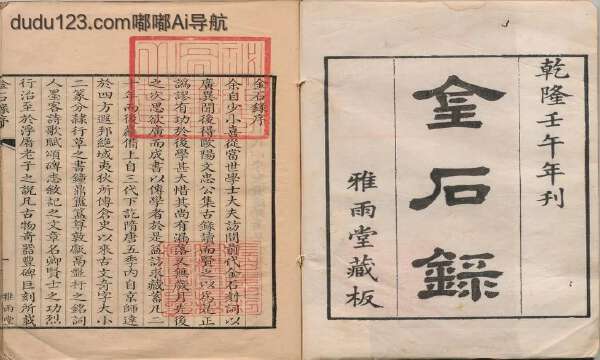 dudu123.com嘟嘟Ai导航
乾隆壬午年刊
金石錄
雅雨堂藏板
金石錄序
余自少小喜從當世學士大夫訪問前代金石刻詞以
廣異聞後得歐陽文忠公集古錄讀而賢之以爲是正
譌謬有功於後學甚大惜其尚有漏落又無歲月先後
之次思欲廣而成書以傳學者於是益訪求藏蓄凡二
十年而後粗備上自三代下訖隋唐五季內自京師達
於四方遐邦絕域夷狄所傳倉史以來古文奇字大小
二篆分隸行草之書鐘鼎簠簋尊敦甗鬲盤杅之銘詞
人墨客詩歌賦頌碑志敘記之文章名卿賢士之功烈
行治至於浮屠老子之說凡古物奇器豐碑巨刻所載
金石錄序
一
雅雨堂